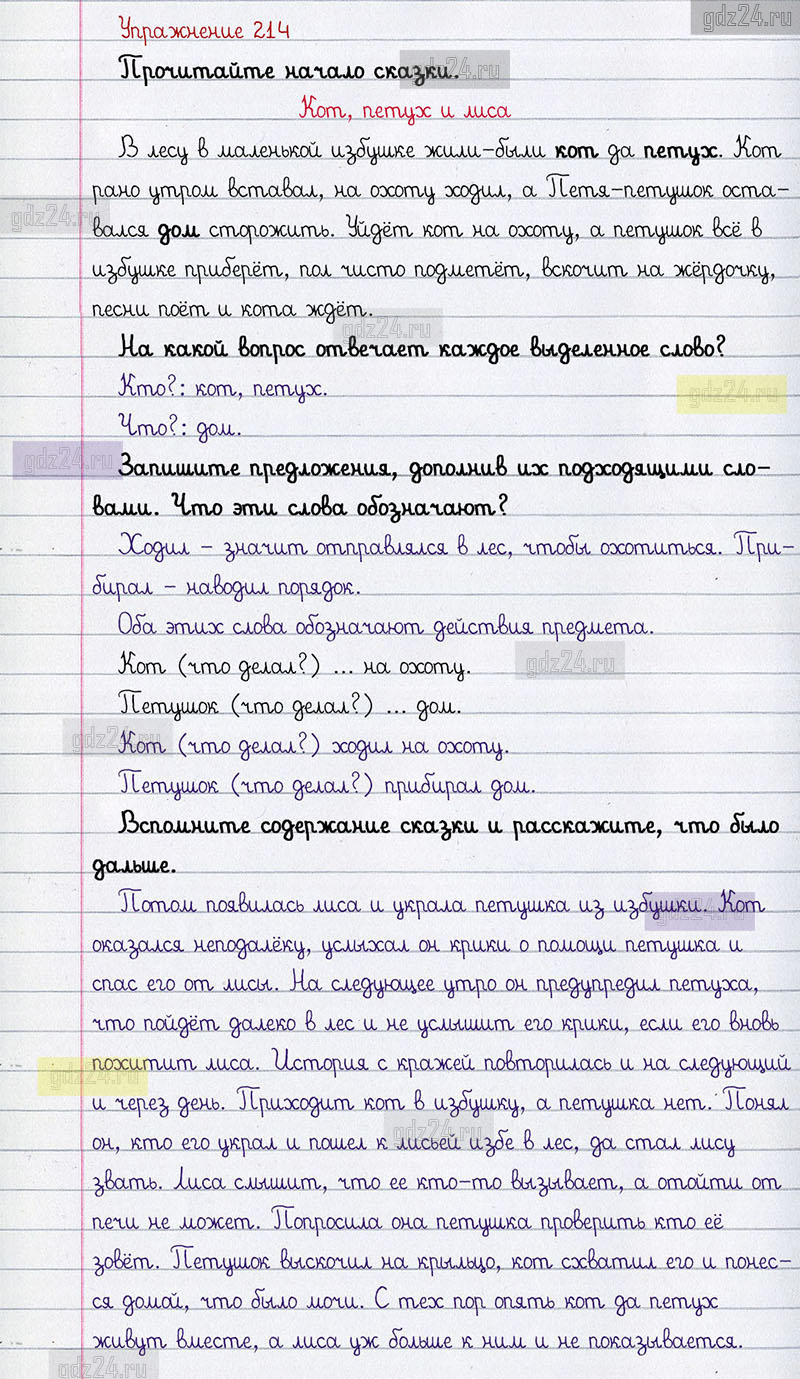 gdz24.ru
Упражнение 214
Прочитайте начало сказки.
gdz24.ru
Кот, петух и лиса
В лесу в маленькой избушке жили-были кот да петух. Кот
рано утром вставал, на охоту ходил, а Петя-петушок оста-
gdz24.ru
вался дом сторожить. Уйдёт кот на охоту, а петушок всё в
избушке приберёт, пол чисто подметёт, вскочит на жёрдочку,
песни поёт и кота ждёт.
gdz24.ru
На какой вопрос отвечает каждое выделенное слово?
Кто?: кот, петух.
gdz24.ru
Что?: дом.
gdz24.ru
Запишите предложения, дополнив их подходящими сло-
вами. Что эти слова обозначают?
Ходил – значит отправлялся в лес, чтобы охотиться. При-
бирал – наводил порядок.
Оба этих слова обозначают действия предмета.
Кот (что делал?) ... на охоту.
gdz24.ru
Петушок (что делал?) ... дом.
gdz24.ru
Кот (что делал?) ходил на охоту.
Петушок (что делал?) прибирал дом.
Вспомните содержание сказки и расскажите, что было
дальше.
Потом появилась лиса и украла петушка из избушки. Кот
gdz24.ru
оказался неподалёку, услыхал он крики о помощи петушка и
спас его от лисы. На следующее утро он предупредил петуха,
что пойдёт далеко в лес и не услышит его крики, если его вновь
похитит лиса. История с кражей повторилась и на следующий
gdz24.ru
и через день. Приходит кот в избушку, а петушка нет. Понял
gdz24.ru
он, кто его украл и пошел к лисьей избе в лес, да стал лису
звать. Лиса слышит, что ее кто-то вызывает, а отойти от
печи не может. Попросила она петушка проверить кто её
зовёт. Петушок выскочил на крыльцо, кот схватил его и понес-
ся домой, что было мочи. С тех пор опять кот да петух
живут вместе, а лиса уж больше к ним и не показывается.
gdz24.ru